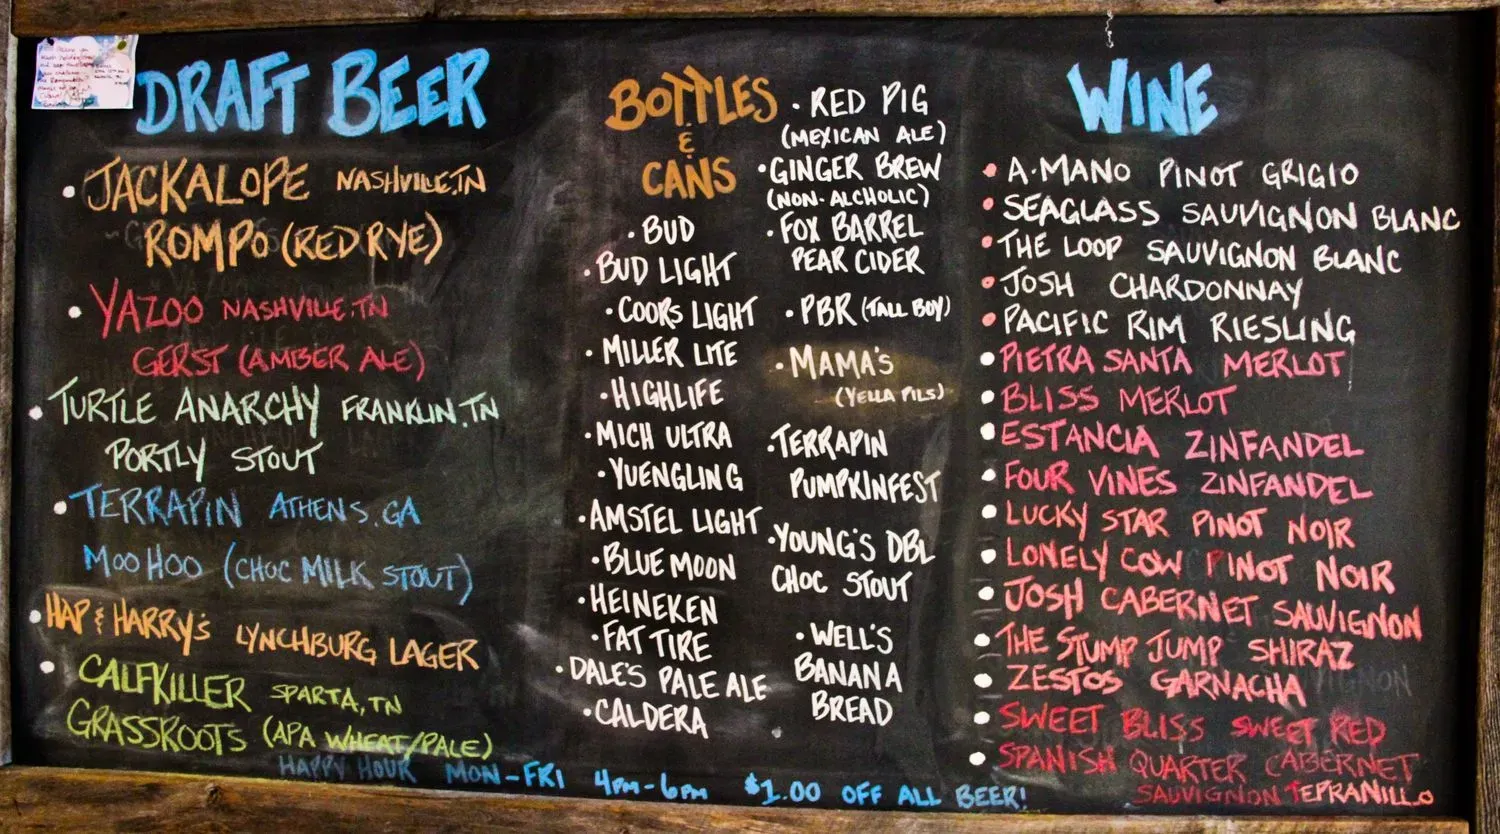 DRAFT BEER
JACKALOPE NASHVILLE, TN
ROMPO (RED RYE)
YAZOO NASHVILLE, TN
GERST (AMBER ALE)
TURTLE ANARCHY FRANKLIN, TN
PORTLY STOUT
TERRAPIN ATHENS, GA
MOO HOO (CHOC MILK STOUT)
HAP & HARRY'S LYNCHBURG LAGER
CALFKILLER SPARTA, TN
GRASSROOTS (APA WHEAT/PALE)
BOTTLES
&
CANS
• BUD
• BUD LIGHT
• COORS LIGHT
• MILLER LITE
• HIGHLIFE
• MICH ULTRA
• YUENGLING
• AMSTEL LIGHT
• BLUE MOON
• HEINEKEN
• FAT TIRE
• DALE'S PALE ALE
• CALDERA
• RED PIG
(MEXICAN ALE)
• GINGER BREW
(NON-ALCHOLIC)
• FOX BARREL
PEAR CIDER
• PBR (TALL BOY)
• MAMA'S
(YELLA PILS)
• TERRAPIN
PUMPKINFEST
• YOUNG'S DBL
CHOC STOUT
• WELL'S
BANANA
BREAD
WINE
• A-MANO PINOT GRIGIO
• SEAGLASS SAUVIGNON BLANC
• THE LOOP SAUVIGNON BLANC
• JOSH CHARDONNAY
• PACIFIC RIM RIESLING
• PIETRA SANTA MERLOT
• BLISS MERLOT
• ESTANCIA ZINFANDEL
• FOUR VINES ZINFANDEL
• LUCKY STAR PINOT NOIR
• LONELY COW PINOT NOIR
• JOSH CABERNET SAUVIGNON
• THE STUMP JUMP SHIRAZ
• ZESTOS GARNACHA
• SWEET BLISS SWEET RED
• SPANISH QUARTER CABERNET
SAUVIGNON TEPRANILLO
HAPPY HOUR MON-FRI 4PM-6PM $1.00 OFF ALL BEER!